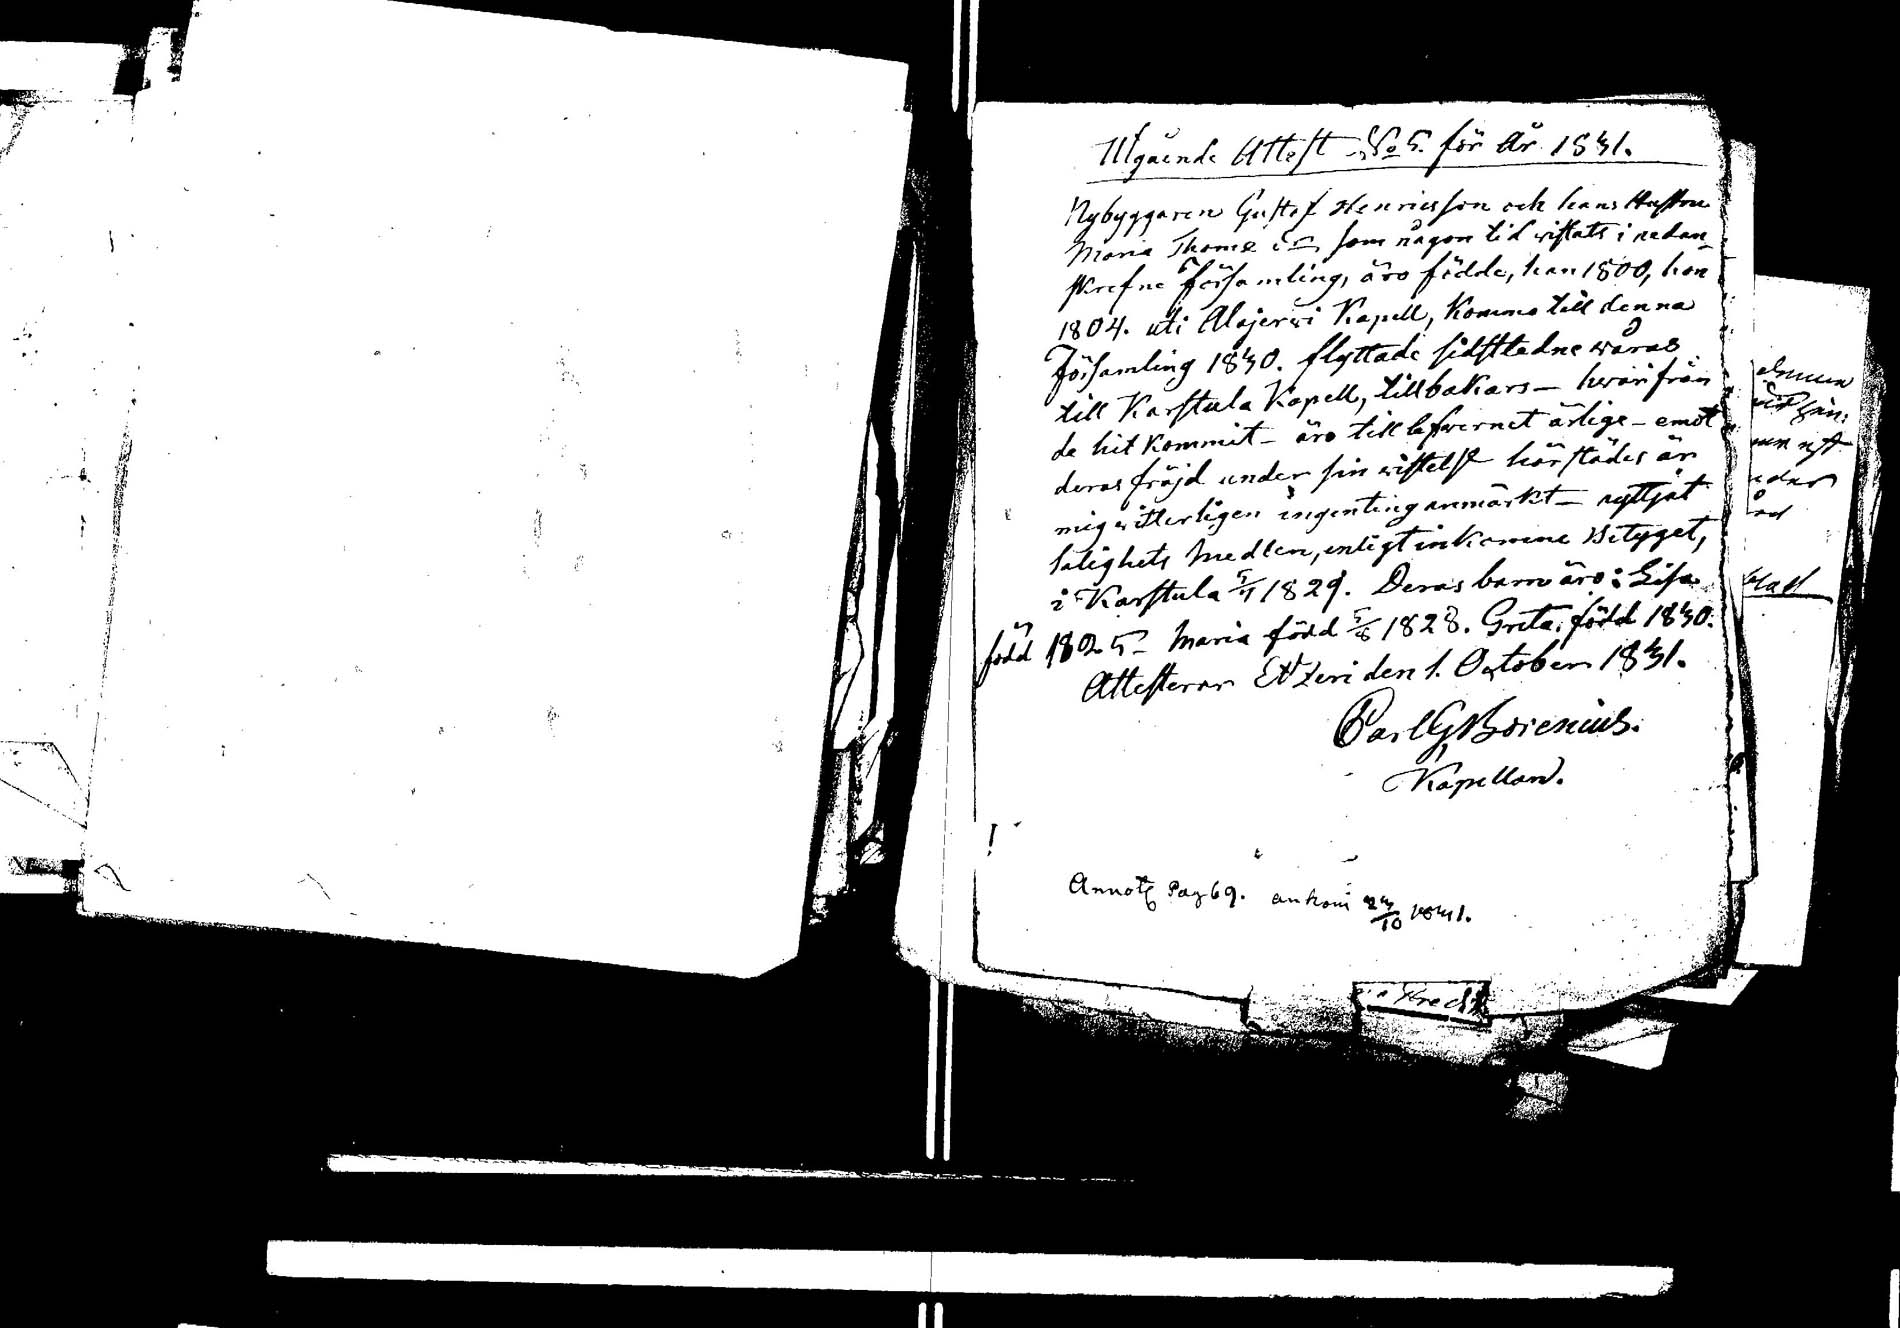 Utgående Attest No 5. för År 1831.
Nybyggaren Gustaf Henricsson och hans Hustru
Maria Thomæ dr som någon tid vistats i nedan-
skrefne församling, äro födde, han 1800, hon
1804. uti Alajerwi Kapell, Kommo till denna
Församling 1830. flyttade sidstledne wåras
till Karstula Kapell, tillbakars – hwarifrån
de hit kommit – äro till lefwernet ärlige – emot
deras fräjd under sin wistelse härstädes är
mig witterligen ingenting anmärkt – nyttjat
salighets medlen, enligt inkomne Betyget,
i Karstula 5/7 1829. Deras barn äro: Lisa
född 1825 – Maria född 5/8 1828. Greta född 1830.
Attesterar Etzeri den 1. October 1831.
Carl G Borenius.
Kapellan.
Annot Pag 69. ankom 23/10 1831.